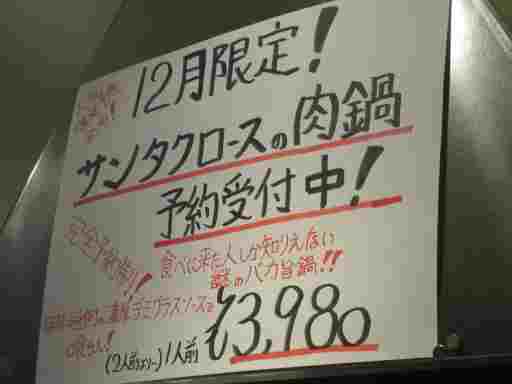 12月限定!
サンタクロースの肉鍋
予約受付中!
完全予約制!!
食べに来た人しか知りえない
謎のバカ旨鍋!!
濃厚デミグラスソースを
(2人前より〜)1人前 ¥3,980